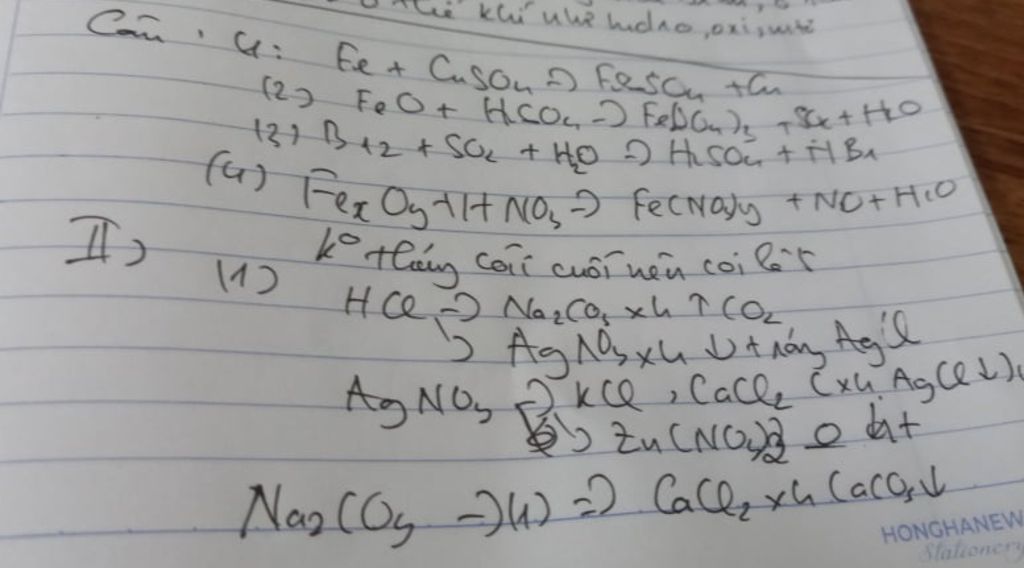 thể khí nhẹ hidro, oxi,
Câu 1 4: Fe + CuSO4 => FeSO4 + Cu
(2) FeO + HCO4 -> Fe(SO4)2 + + H2O
(3) Br2 + SO2 + H2O => H2SO4 + HBr
(4) FexOy + HNO3 => Fe(NO3)y + NO + H2O
II)
(1) ko thắng cái cuối nên coi
HCl => Na2CO3 xh ↑ CO2
↳ AgNO3 xh ↓ trắng AgCl
AgNO3 => KCl, CaCl2 (xh AgCl↓)
↳ Zn(NO3)2 0 ht
Na2CO3 -> (1) => CaCl2 xh CaCO3↓
HONGHANEW
Stationery